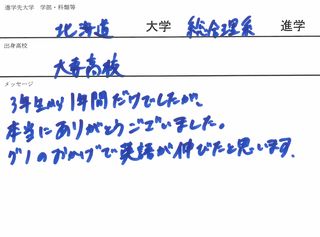 進学先大学 学部・科類等
北海道 大学 総合理系 進学
出身高校
大麻高校
メッセージ
3年生から1年間だけでしたが、
本当にありがとうございました。
グノのおかげで英語が伸びたと思います。